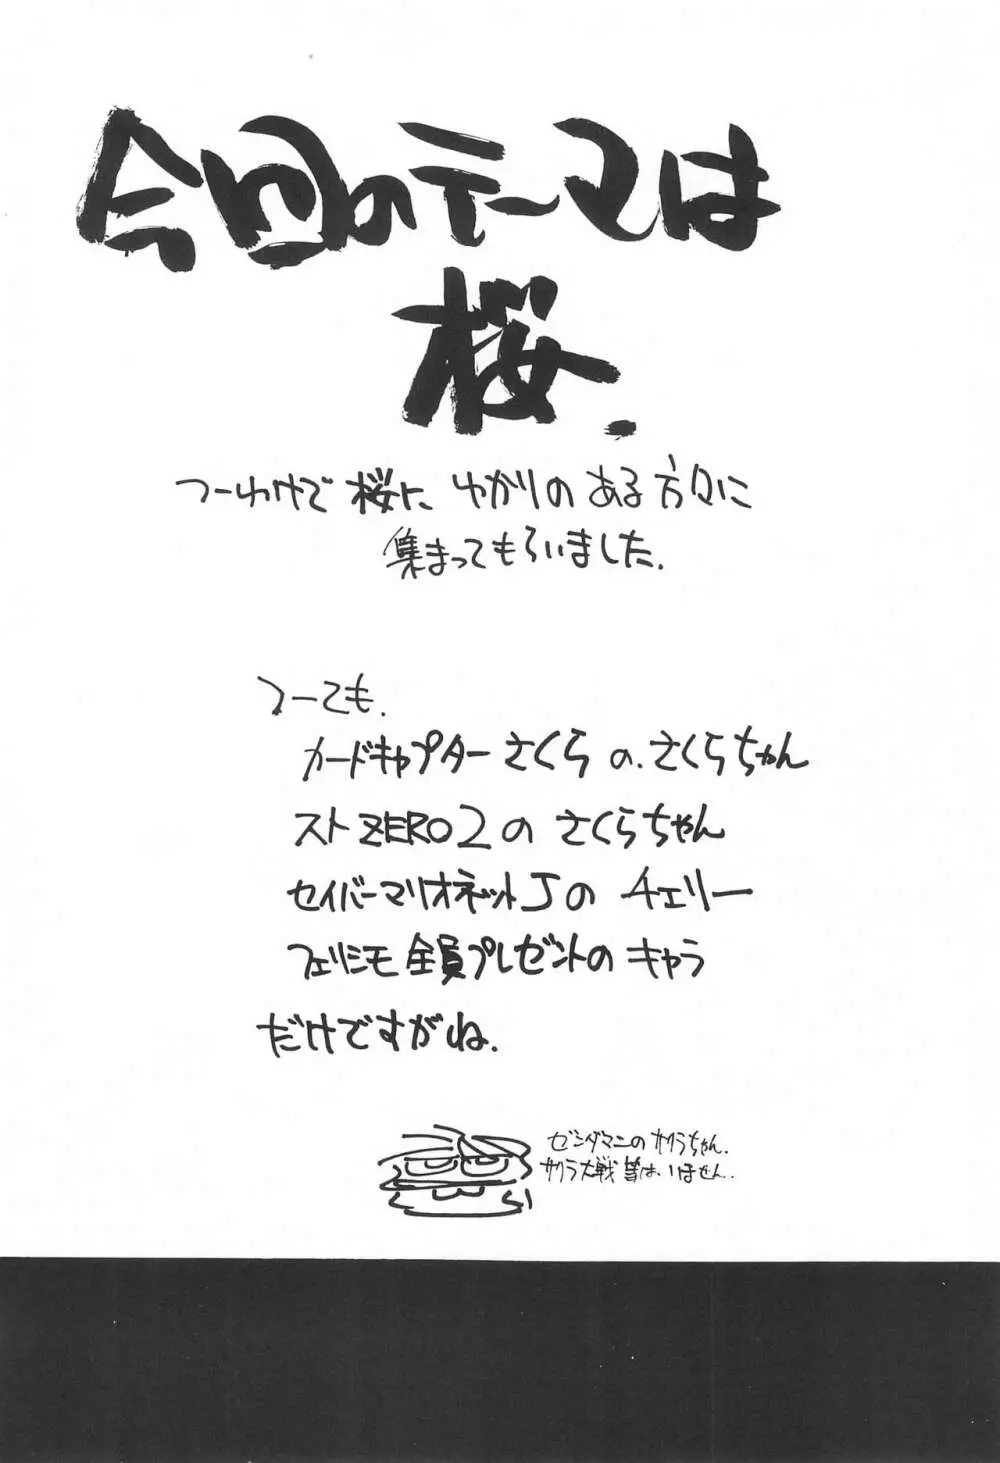 今回のテーマは
桜.
つーわけで 桜に ゆかりの ある 方々に
集まってもらいました.
つーても.
カードキャプター さくら の. さくらちゃん
スト ZERO2 の さくらちゃん
セイバーマリオネットJの チェリー
フェリシモ 全員プレゼントの キャラ
だけですがね.
ゼンダマンの サクラちゃん.
サクラ大戦 等は. いません.